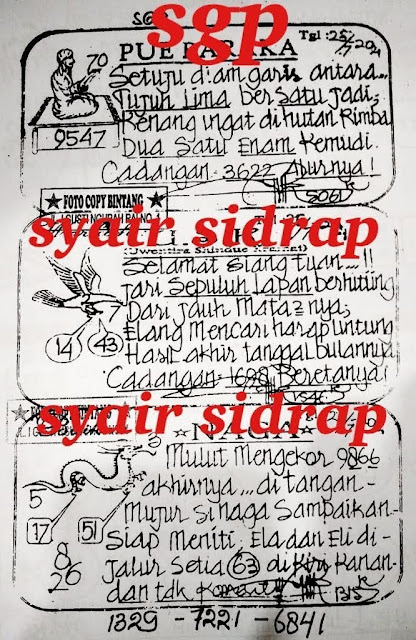 SG
sgp
Tgl :25/
PUE BARAKA
70
9547
Setuju diam garis antara...
Tujuh Lima bersatu jadi,
Renang ingat di hutan Rimba
Dua Satu Enam Kemudi.
Cadangan 3622 Aburnya!
★ FOTO COPY BINTANG ★
syair sidrap
Selamat siang tuan...!!
Jari Sepuluh Lapan berhitung
Dari Jauh Mata2 nya,
Elang Mencari harap Untung
Hasil akhir tanggal bulannya
Cadangan 1698 Beretanya!
7
14 43
syair sidrap
★NAGA★
Mulut Mengekor 9866
akhirnya... di tangan-
Mujur Si naga Sampaikan-
Siap Meniti Ela dan Eli di-
Jalur Setia 63 di Kiri Kanan-
dan tdk
5
17 51
8
26
1329 - 7221 - 6841